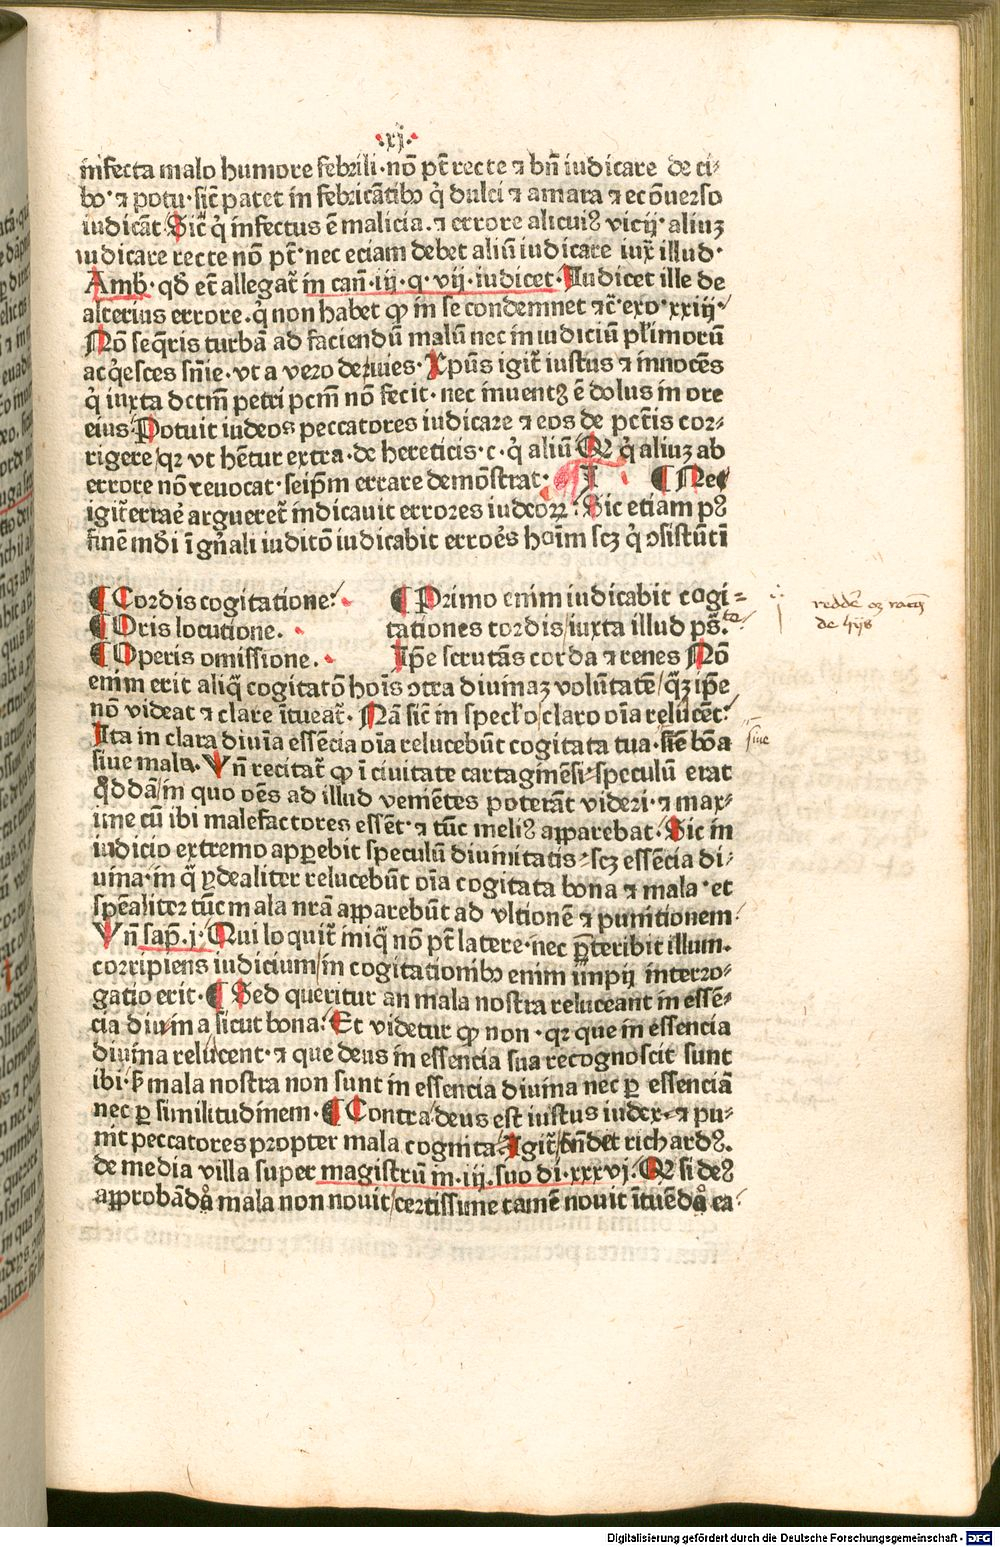 ·xj·
infecta malo humore febrili·nō pt̄ recte ⁊ bn̄ iudicare de ci⸗
bo· ⁊ potu·sic̄ patet in febricātibꝰ q̇ dulci ⁊ amara ⁊ ecōuerso
iudicāt·Sic̄ q̇ infectus ē malicia·⁊ errore alicuiꝰ vicij·aliuꝫ
iudicare recte nō pt̄·nec eciam debet aliū iudicare iux̄ illud·
Amb̄·qd̄ ec̄ allegat̄ in can̄·iij·q·vij·iudicet·Iudicet ille de
alterius errore·q̇ non habet ꝙ in se condemnet ⁊c̄ exo·xxiij·
Nō seq̄ris turbā ad faciendū malū nec in iudiciū pl̄imorū
acq̇esces sn̄ie·vt a vero deuies·Xpūs igit̄ iustus ⁊ innocēs
q̇ iuxta dctm̄ petri pcm̄ nō fecit·nec inuentꝰ ē dolus in ore
eius Potuit iudeos peccatores iudicare ⁊ eos de pctīs cor⸗
rigere/qꝛ vt hētur extra·de hereticis·c·q̇ aliū Qꝛ q̇ aliuꝫ ab
errore nō reuocat·seip̄m errare demōstrat: ¶ Nec
igit̄ errare argueret̄ indicauit errores iudeoꝝ·Sic etiam pꝰ
finē mdi ī gn̄ali iuditō iudicabit erroēs hoīm scꝫ q̇ ↄsistūt ī
¶ Cordis cogitatione· ¶ Primo enim iudicabit cogi⸗
¶ Oris locutione. tationes cordis/iuxta illud ps̄.
¶ Operis omissione. Ip̄e scrutās corda ⁊ renes Nō
enim erit aliq̄ cogitatō hoīs ↄtra diuinaꝫ volūtatē/q̄ꝫ ip̄e
nō videat ⁊ clare ītueat̄·Nā sic̄ in spectło/claro oīa relucēt:
Ita in clara diuīa essēcia oīa relucebūt cogitata tua·siue bōa
siue mala·Vn̄ recitat̄ ꝙ ī ciuitate cartaginēsi·speculū erat
q̄ddā/in quo oēs ad illud veniētes poterāt videri·⁊ max⸗
ime cū ibi malefactores essēt·⁊ tūc meliꝰ apparebat·Sic in
iudicio extremo apꝑebit speculū diuinitatis·scꝫ essēcia di⸗
uina·in q̄ ydealiter relucebūt oīa cogitata bona ⁊ mala·et
spēaliter tūc mala nrā apparebūt ad vltionē ⁊ punitionem·
Vn̄ sap̄·j·Qui loquit̄ iniq̄ nō pt̄ latere·nec p̄teribit illum·
corripiens iudicium/in cogitationibꝰ enim impij interro⸗
gatio erit·¶ Sed queritur an mala nostra reluceant in essē⸗
cia diuina sicut bona·Et videtur ꝙ non·qꝛ que in essencia
diuina relucent·⁊ que deus in essencia sua recognoscit sunt
ibi·s̄ mala nostra non sunt in essencia diuina nec ꝑ essenciā
nec ꝑ similitudinem·¶ Contra deus est iustus iudex·⁊ pu⸗
nit peccatores propter mala cognita·Igit̄ rn̄det richardꝰ.
de media villa super magistrū in·iij·suo di·xxxvj·Qꝛ si deꝰ
approbādo mala non nouit/certissime tamē nouit ītuēdo ea·
te·
sine
de hijs